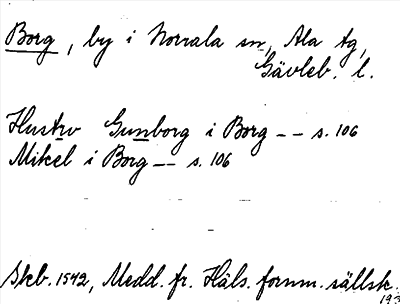 Borg, by i Norrala sn, Ala tg,
Gävleb. l.
Hustrv Gunborg i Borg -- s. 106
Mikel i Borg -- s. 106
Skb. 1542, Medd. fr. Häls. fornm. sällsk.
193